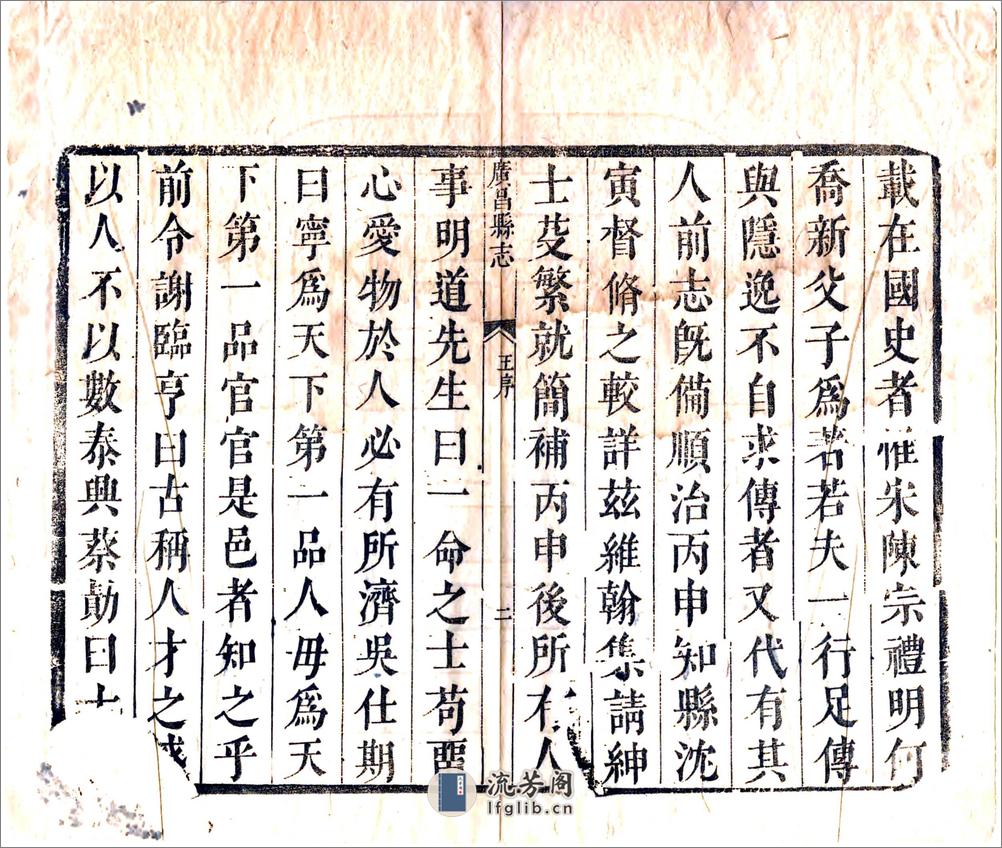 載在國史者惟宋陳宗禮明何
喬新父子爲著若夫一行足傳
與隱逸不自求傳者又代有其
人前志旣備順治丙申知縣沈
寅督脩之較詳茲維翰集請紳
士芟繁就簡補丙申後所有人
廣昌縣志
王序
二
事明道先生曰一命之士苟
心愛物於人必有所濟吳仕期
曰寧爲天下第一品人毋爲天
下第一品官官是邑者知之乎
前令謝臨亨曰古稱人才之
以人不以數泰興蔡曰
流芳阁
lfglib.cn